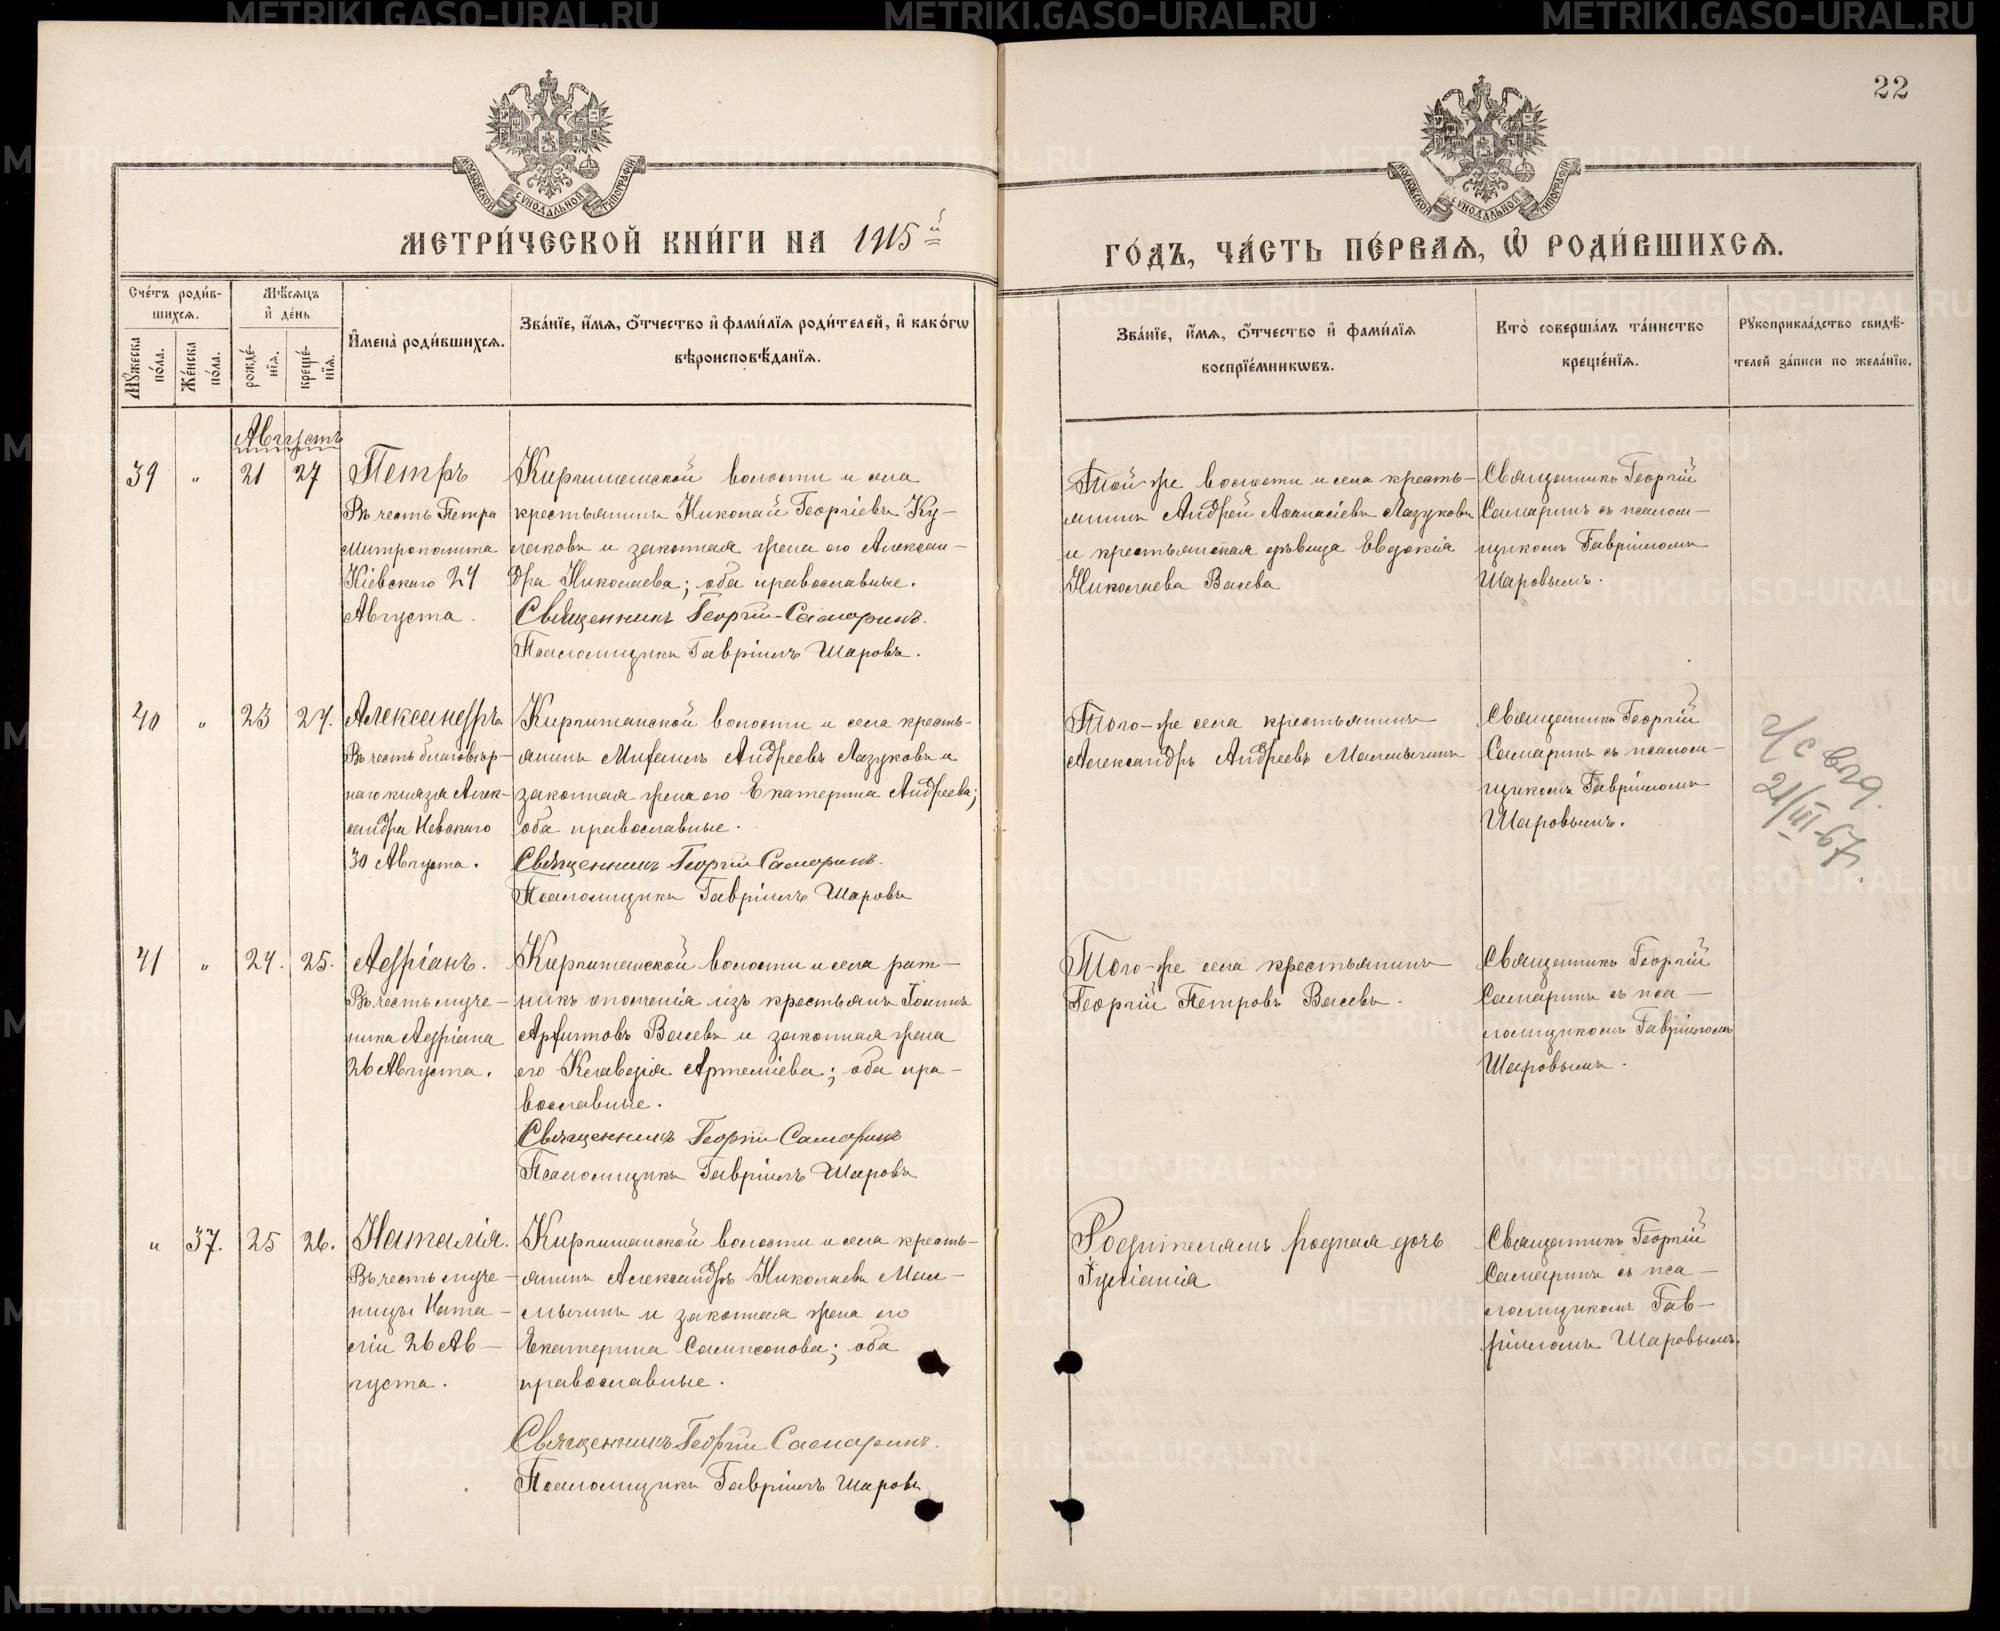 22
МОСКОВСКОЙ СѴНОДАЛЬНОЙ ТИПОГРАФІИ
МОСКОВСКОЙ СѴНОДАЛЬНОЙ ТИПОГРАФІИ
МЕТРИ́ЧЕСКОЙ КНИ́ГИ НА 1915й
ГО́ДЪ, ЧА́СТЬ ПЕ́РВАѦ, Ѡ҆ РОДИ́ВШИХСѦ.
Сче́тъ роди́в-
шихсѧ.
Мꙋ́жеска по́ла.
Же́нска по́ла.
Мѣ́сѧцъ и҆ де́нь
рожде́-
нїѧ.
креще́-
нїѧ.
И҆мена̀ роди́вшихсѧ.
Зва́нїе, и҆́мѧ, ѻ҆́тчество и҆ фами́лїѧ роди́телей, и҆ како́гѡ
вѣроисповѣ́данїѧ.
Зва́нїе, и҆́мѧ, ѻ҆́тчество и҆ фами́лїѧ
воспрїе́мникѡвъ.
Кто̀ соверша́лъ та́инство
креще́нїѧ.
Рꙋкоприкла́дство свидѣ́-
телей за́писи по жела́нїю.
Августъ
39 " 21 27
Петръ
Въ честь Петра
Митрополита
Кіевскаго 24
Августа.
Киргишанской волости и села
крестьянинъ Николай Георгіевъ Ку-
лаковъ и законная жена его Алексан-
дра Николаева; оба православные.
Священникъ Георгій Самаринъ.
Псаломщикъ Гавріилъ Шаровъ.
Той-же волости и села кресть-
янинъ Андрей Аѳанасіевъ Лазуковъ
и крестьянская дѣвица Евдокія
Николаева Валева
Священникъ Георгій
Самаринъ съ псалом-
щикомъ Гавріиломъ
Шаровымъ.
40 " 23 24.
Александръ
Въ честь благовѣр-
наго князя Алек-
сандра Невскаго
30 Августа.
Киргишанской волости и села кресть-
янинъ Михаилъ Андреевъ Лазуковъ и
законная жена его Екатерина Андреева;
оба православные.
Священникъ Георгій Самаринъ.
Псаломщикъ Гавріилъ Шаровъ
Того-же села крестьянинъ
Александръ Андреевъ Малмыгинъ
Священникъ Георгій
Самаринъ съ псалом-
щикомъ Гавріиломъ
Шаровымъ.
21/III-67г.
41 " 24. 25.
Адріанъ.
Въ честь муче-
ника Адріана
26 Августа.
Киргишанской волости и села рат-
никъ ополченія изъ крестьянъ Іоаннъ
Архиповъ Валевъ и законная жена
его Клавдія Артеміева; оба пра-
вославные.
Священникъ Георгій Самаринъ
Псаломщикъ Гавріилъ Шаровъ
Того-же села крестьянинъ
Георгій Петровъ Валевъ.
Священникъ Георгій
Самаринъ съ пса-
ломщикомъ Гавріиломъ
Шаровымъ.
" 37. 25 26.
Наталія.
Въ честь муче-
ницы Ната-
ліи 26 Ав-
густа.
Киргишанской волости и села кресть-
янинъ Александръ Николаевъ Мал-
мыгинъ и законная жена его
Екатерина Сампсонова; оба
православные.
Священникъ Георгій Самаринъ.
Псаломщикъ Гавріилъ Шаровъ
Родителямъ родная дочь
Іуліанія
Священникъ Георгій
Самаринъ съ пса-
ломщикомъ Гав-
ріиломъ Шаровымъ.
METRIKI.GASO-URAL.RU